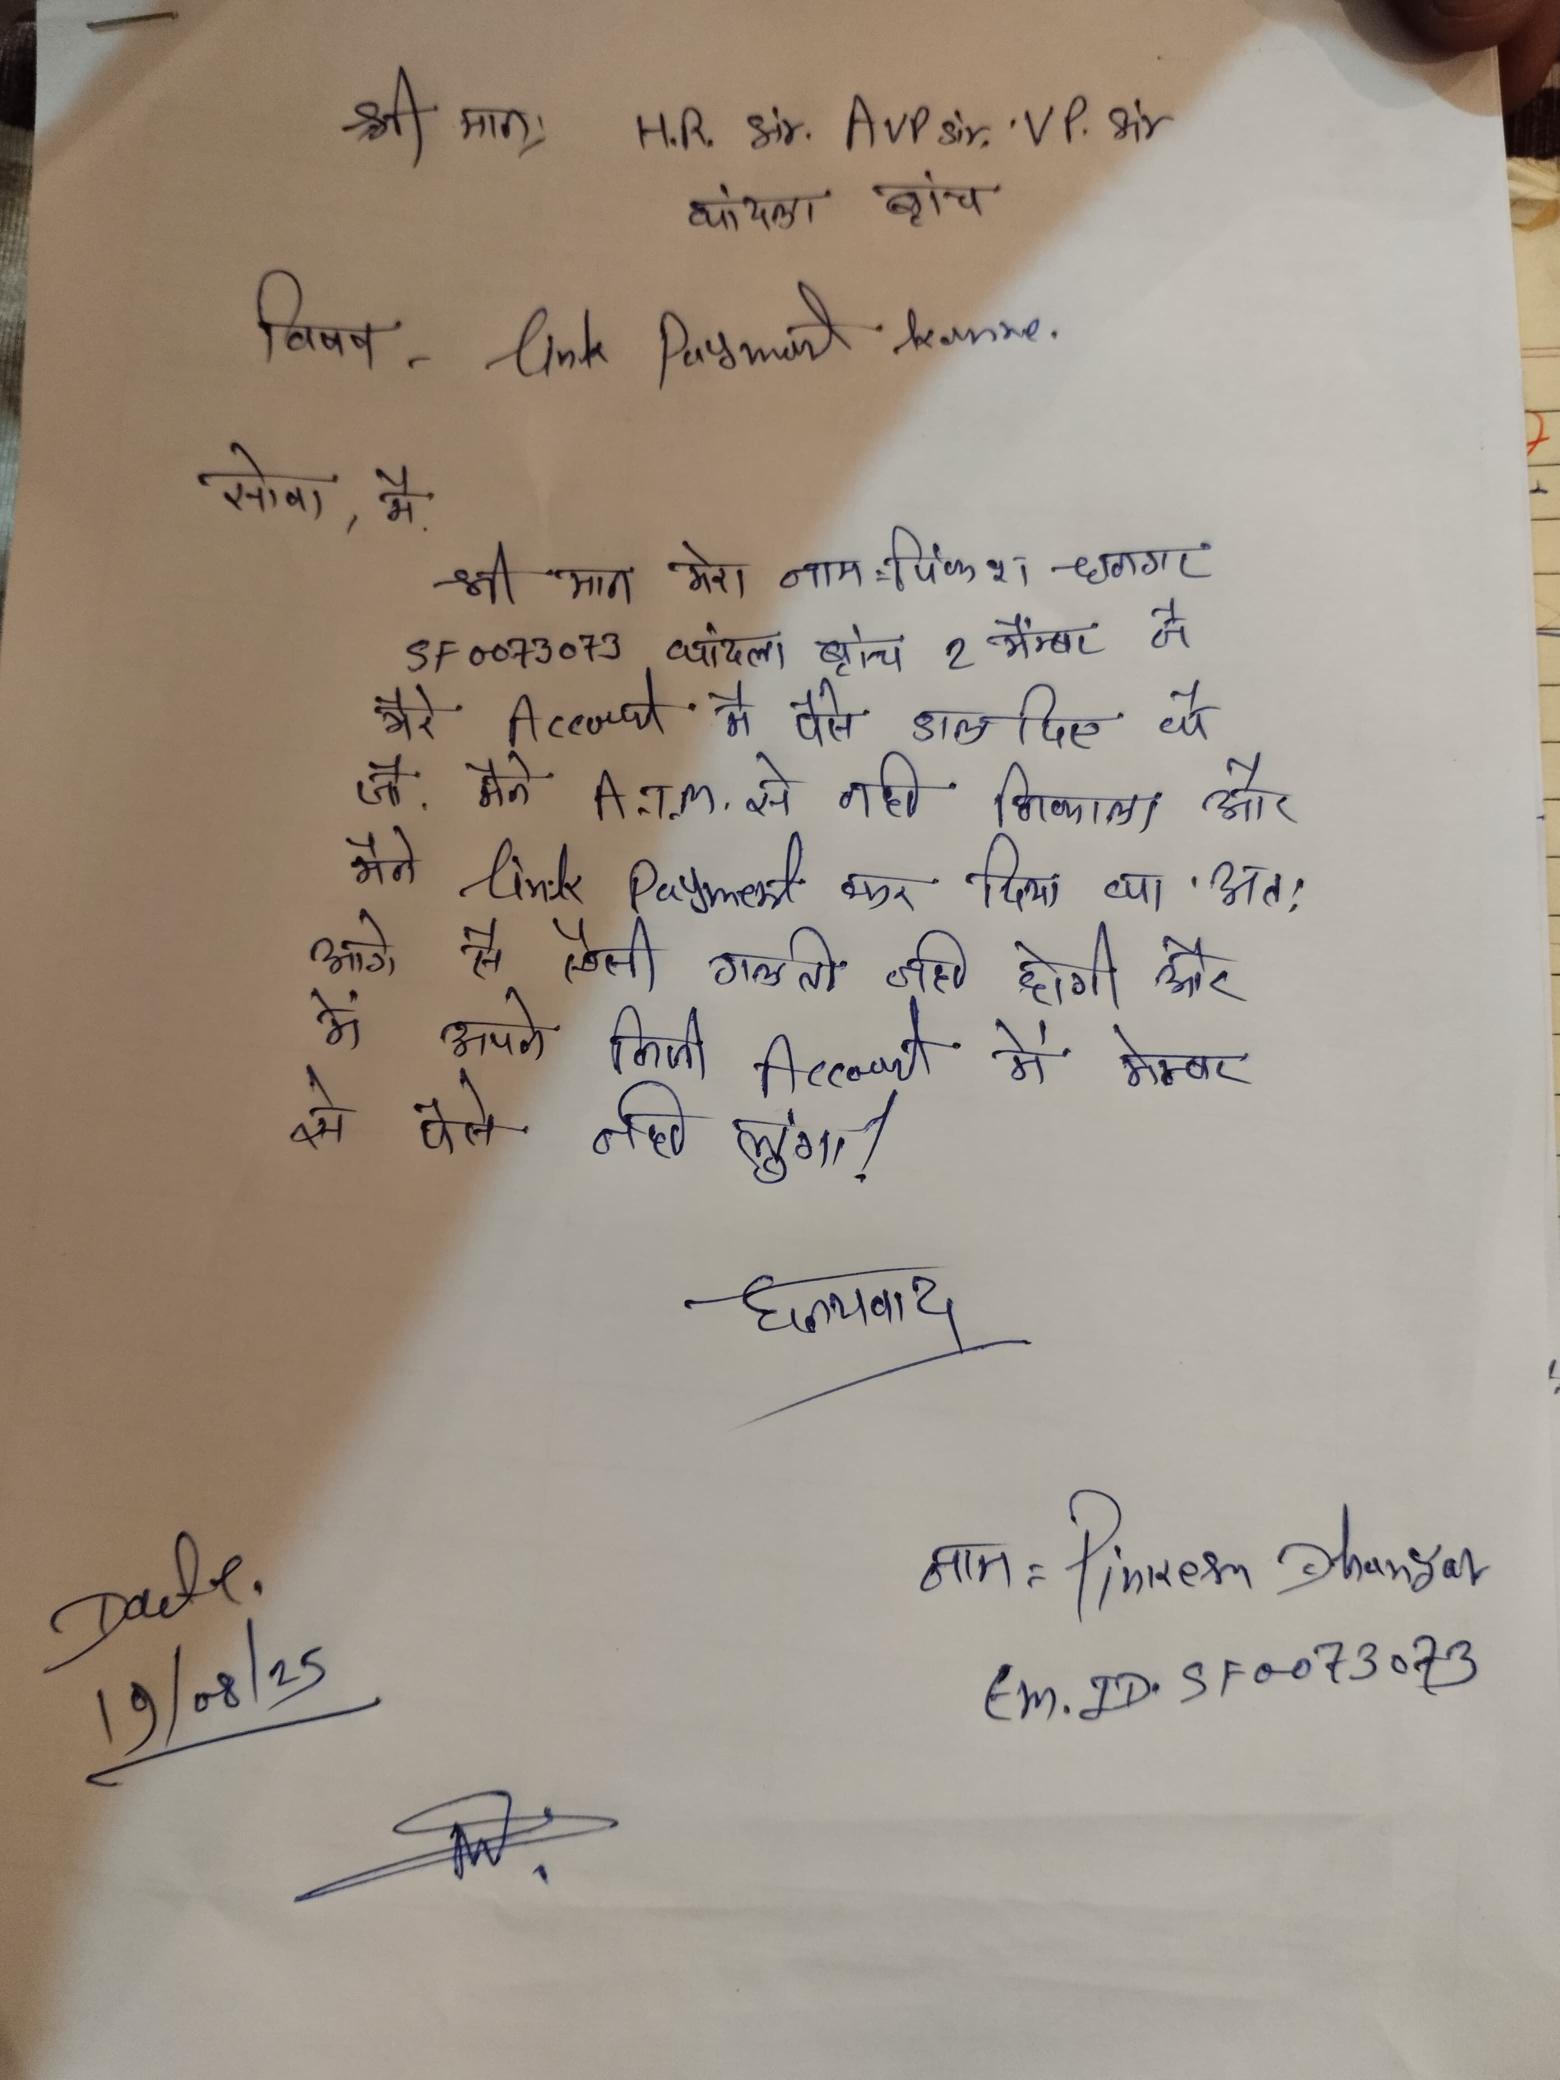 श्री मानः H.R. sir. AVP sir. VP. sir
थांदला ब्रांच
विषय - link Payment karnne.
सेवा, मै.
श्री मान मेरा नाम = पिंकेश धनगर
SF0073073 थांदला ब्रांच 2 मैम्बर ने
मैरे Account मै पैसे डाल दिए थै
जो. मैने A.T.M. से नही निकाला और
मैने link Payment कर दिया था अतः
आगे सै ऐसी गलती नही होगी और
में अपने निजी Account में मेम्बर
से पैसे नही लुंगा!
धन्यवाद
नाम = Pinkesh Dhangar
Em. ID. SF0073073
Date.
19/08/25